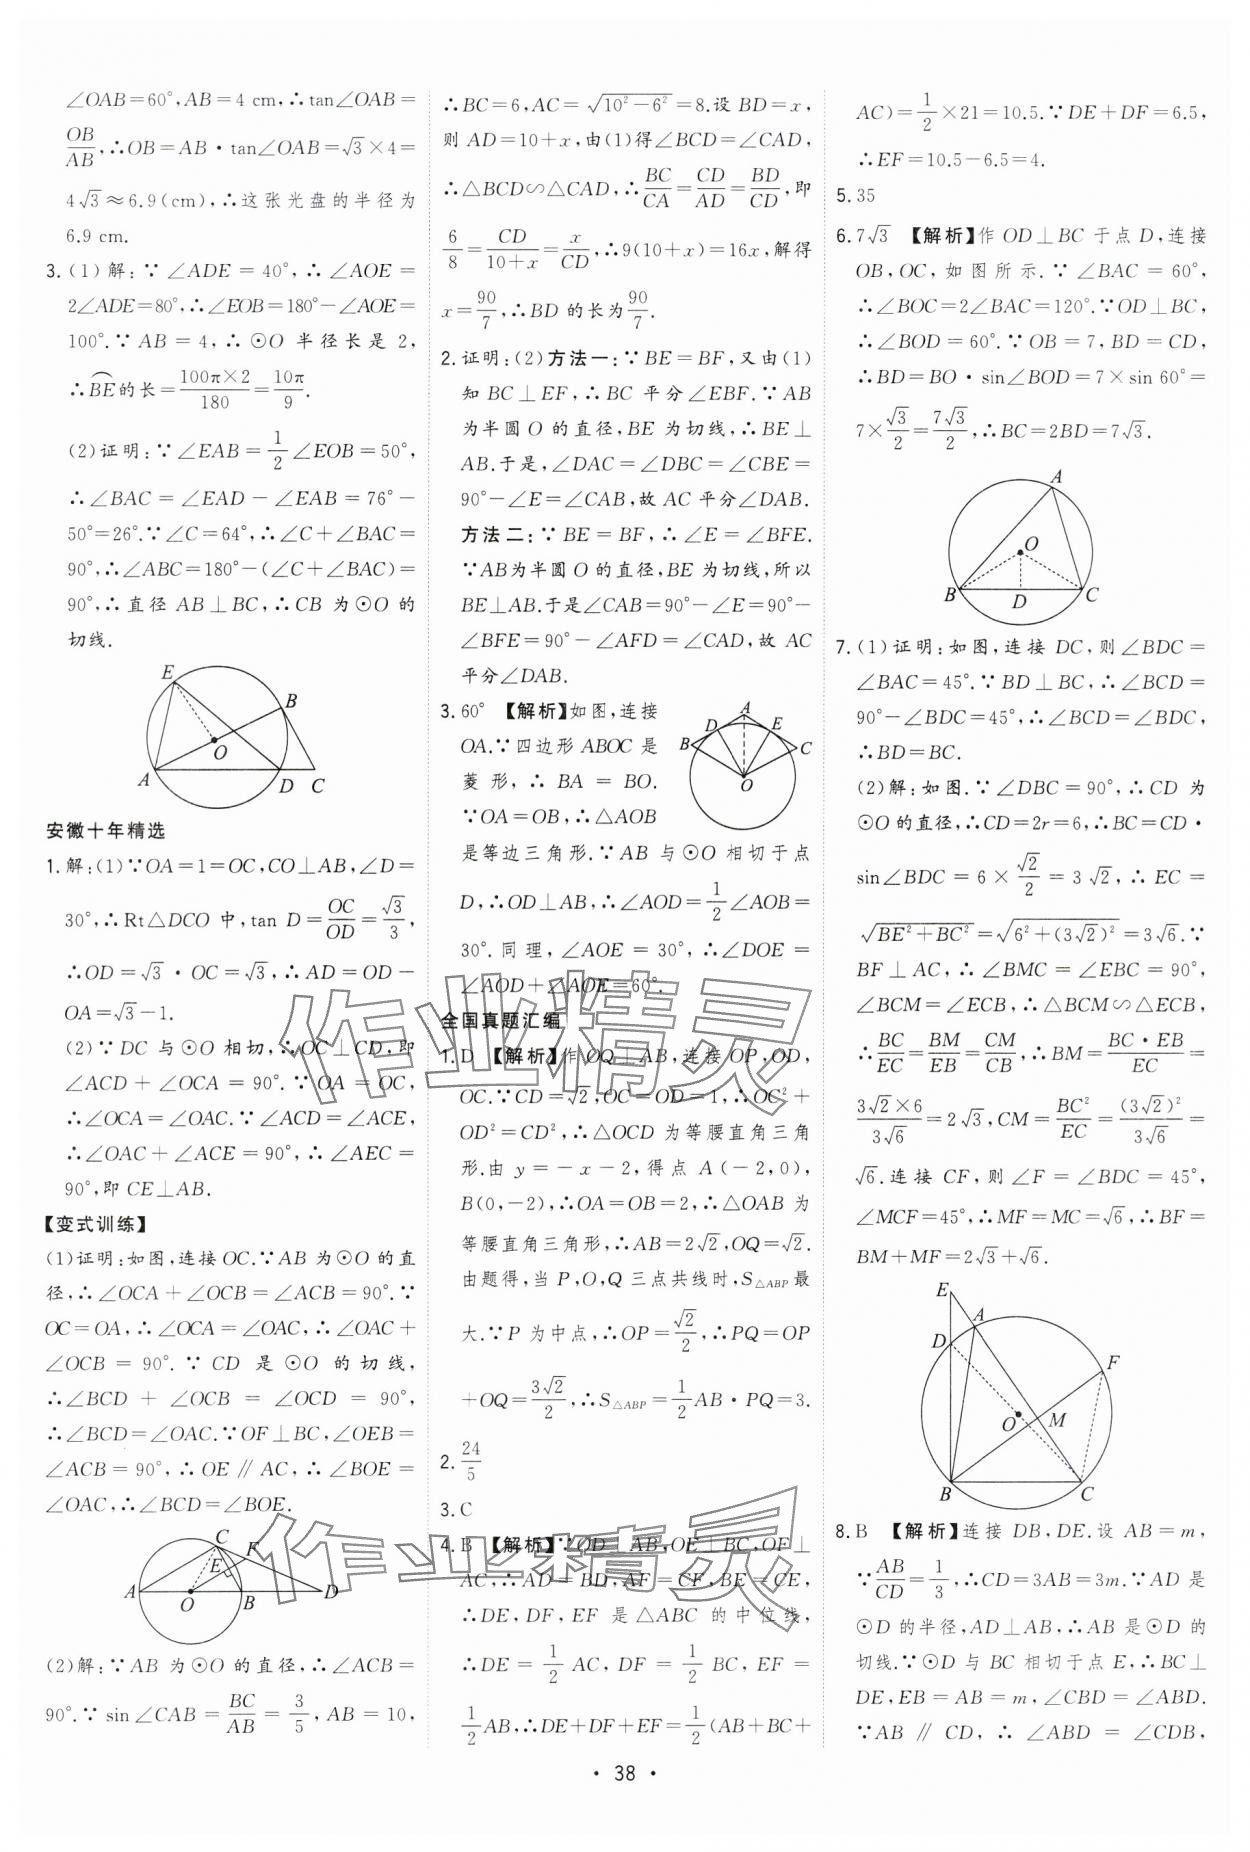 ∠OAB=60°,AB=4 cm,∴tan∠OAB=
OB/AB,∴OB=AB·tan∠OAB=√3×4=
4√3≈6.9(cm),∴这张光盘的半径为
6.9 cm.
3.(1)解:∵∠ADE=40°,∴∠AOE=
2∠ADE=80°,∴∠EOB=180°-∠AOE=
100°.∵AB=4,∴⊙O 半径长是 2,
∴BE⌒的长=100π×2/180=10π/9.
(2)证明:∵∠EAB=1/2∠EOB=50°,
∴∠BAC=∠EAD-∠EAB=76°-
50°=26°.∵∠C=64°,∴∠C+∠BAC=
90°,∴∠ABC=180°-(∠C+∠BAC)=
90°,∴直径 AB⊥BC,∴CB 为⊙O 的
切线.
E
B
O
A
D
C
安徽十年精选
1.解:(1)∵OA=1=OC,CO⊥AB,∠D=
30°,∴Rt△DCO 中,tan D=OC/OD=√3/3,
∴OD=√3·OC=√3,∴AD=OD-
OA=√3-1.
(2)∵DC 与⊙O 相切,∴OC⊥CD,即
∠ACD+∠OCA=90°.∵OA=OC,
∴∠OCA=∠OAC.∵∠ACD=∠ACE,
∴∠OAC+∠ACE=90°,∴∠AEC=
90°,即 CE⊥AB.
【变式训练】
(1)证明:如图,连接 OC.∵AB 为⊙O 的直
径,∴∠OCA+∠OCB=∠ACB=90°.∵
OC=OA,∴∠OCA=∠OAC,∴∠OAC+
∠OCB=90°.∵CD 是⊙O 的切线,
∴∠BCD+∠OCB=∠OCD=90°,
∴∠BCD=∠OAC.∵OF⊥BC,∠OEB=
∠ACB=90°,∴OE∥AC,∴∠BOE=
∠OAC,∴∠BCD=∠BOE.
C
F
E
A
O
B
D
(2)解:∵AB 为⊙O 的直径,∴∠ACB=
90°.∵sin∠CAB=BC/AB=3/5,AB=10,
∴BC=6,AC=√(10²-6²)=8.设 BD=x,
则 AD=10+x,由(1)得∠BCD=∠CAD,
∴△BCD∽△CAD,∴BC/CA=CD/AD=BD/CD,即
6/8=CD/(10+x)=x/CD,∴9(10+x)=16x,解得
x=90/7,∴BD 的长为90/7.
2.证明:(2)方法一:∵BE=BF,又由(1)
知 BC⊥EF,∴BC 平分∠EBF.∵AB
为半圆 O 的直径,BE 为切线,∴BE⊥
AB.于是,∠DAC=∠DBC=∠CBE=
90°-∠E=∠CAB,故 AC 平分∠DAB.
方法二:∵BE=BF,∴∠E=∠BFE.
∵AB为半圆O的直径,BE为切线,所以
BE⊥AB.于是∠CAB=90°-∠E=90°-
∠BFE=90°-∠AFD=∠CAD,故 AC
平分∠DAB.
3.60° 【解析】如图,连接
OA.∵四边形 ABOC 是
菱形,∴BA=BO.
∵OA=OB,∴△AOB
A
D
E
B
C
O
是等边三角形.∵AB 与⊙O 相切于点
D,∴OD⊥AB,∴∠AOD=1/2∠AOB=
30°.同理,∠AOE=30°,∴∠DOE=
∠AOD+∠AOE=60°.
全国真题汇编
1.D 【解析】作 OQ⊥AB,连接 OP,OD,
OC.∵CD=√2,OC=OD=1,∴OC²+
OD²=CD²,∴△OCD 为等腰直角三角
形.由 y=-x-2,得点 A(-2,0),
B(0,-2),∴OA=OB=2,∴△OAB 为
等腰直角三角形,∴AB=2√2,OQ=√2.
由题得,当 P,O,Q 三点共线时,S△ABP最
大.∵P 为中点,∴OP=√2/2,∴PQ=OP
+OQ=3√2/2,∴S△ABP=1/2AB·PQ=3.
2.24/5
3.C
4.B 【解析】∵OD⊥AB,OE⊥BC,OF⊥
AC,∴AD=BD,AF=CF,BE=CE,
∴DE,DF,EF 是△ABC 的中位线,
∴DE=1/2AC,DF=1/2BC,EF=
1/2AB,∴DE+DF+EF=1/2(AB+BC+
AC)=1/2×21=10.5.∵DE+DF=6.5,
∴EF=10.5-6.5=4.
5.35
6.7√3 【解析】作 OD⊥BC 于点 D,连接
OB,OC,如图所示.∵∠BAC=60°,
∴∠BOC=2∠BAC=120°.∵OD⊥BC,
∴∠BOD=60°.∵OB=7,BD=CD,
∴BD=BO·sin∠BOD=7×sin 60°=
7×√3/2=7√3/2,∴BC=2BD=7√3.
A
O
B
D
C
7.(1)证明:如图,连接 DC,则∠BDC=
∠BAC=45°.∵BD⊥BC,∴∠BCD=
90°-∠BDC=45°,∴∠BCD=∠BDC,
∴BD=BC.
(2)解:如图.∵∠DBC=90°,∴CD 为
⊙O 的直径,∴CD=2r=6,∴BC=CD·
sin∠BDC=6×√2/2=3√2,∴EC=
√(BE²+BC²)=√(6²+(3√2)²)=3√6.∵
BF⊥AC,∴∠BMC=∠EBC=90°,
∠BCM=∠ECB,∴△BCM∽△ECB,
∴BC/EC=BM/EB=CM/CB,∴BM=BC·EB/EC=
3√2×6/3√6=2√3,CM=BC²/EC=(3√2)²/3√6=
√6.连接 CF,则∠F=∠BDC=45°,
∠MCF=45°,∴MF=MC=√6,∴BF=
BM+MF=2√3+√6.
E
A
D
F
O
M
B
C
8.B 【解析】连接 DB,DE.设 AB=m,
∵AB/CD=1/3,∴CD=3AB=3m.∵AD 是
⊙D 的半径,AD⊥AB,∴AB 是⊙D 的
切线.∵⊙D 与 BC 相切于点 E,∴BC⊥
DE,EB=AB=m,∠CBD=∠ABD.
∵AB∥CD,∴∠ABD=∠CDB,
·38·
作业精灵
作业精灵